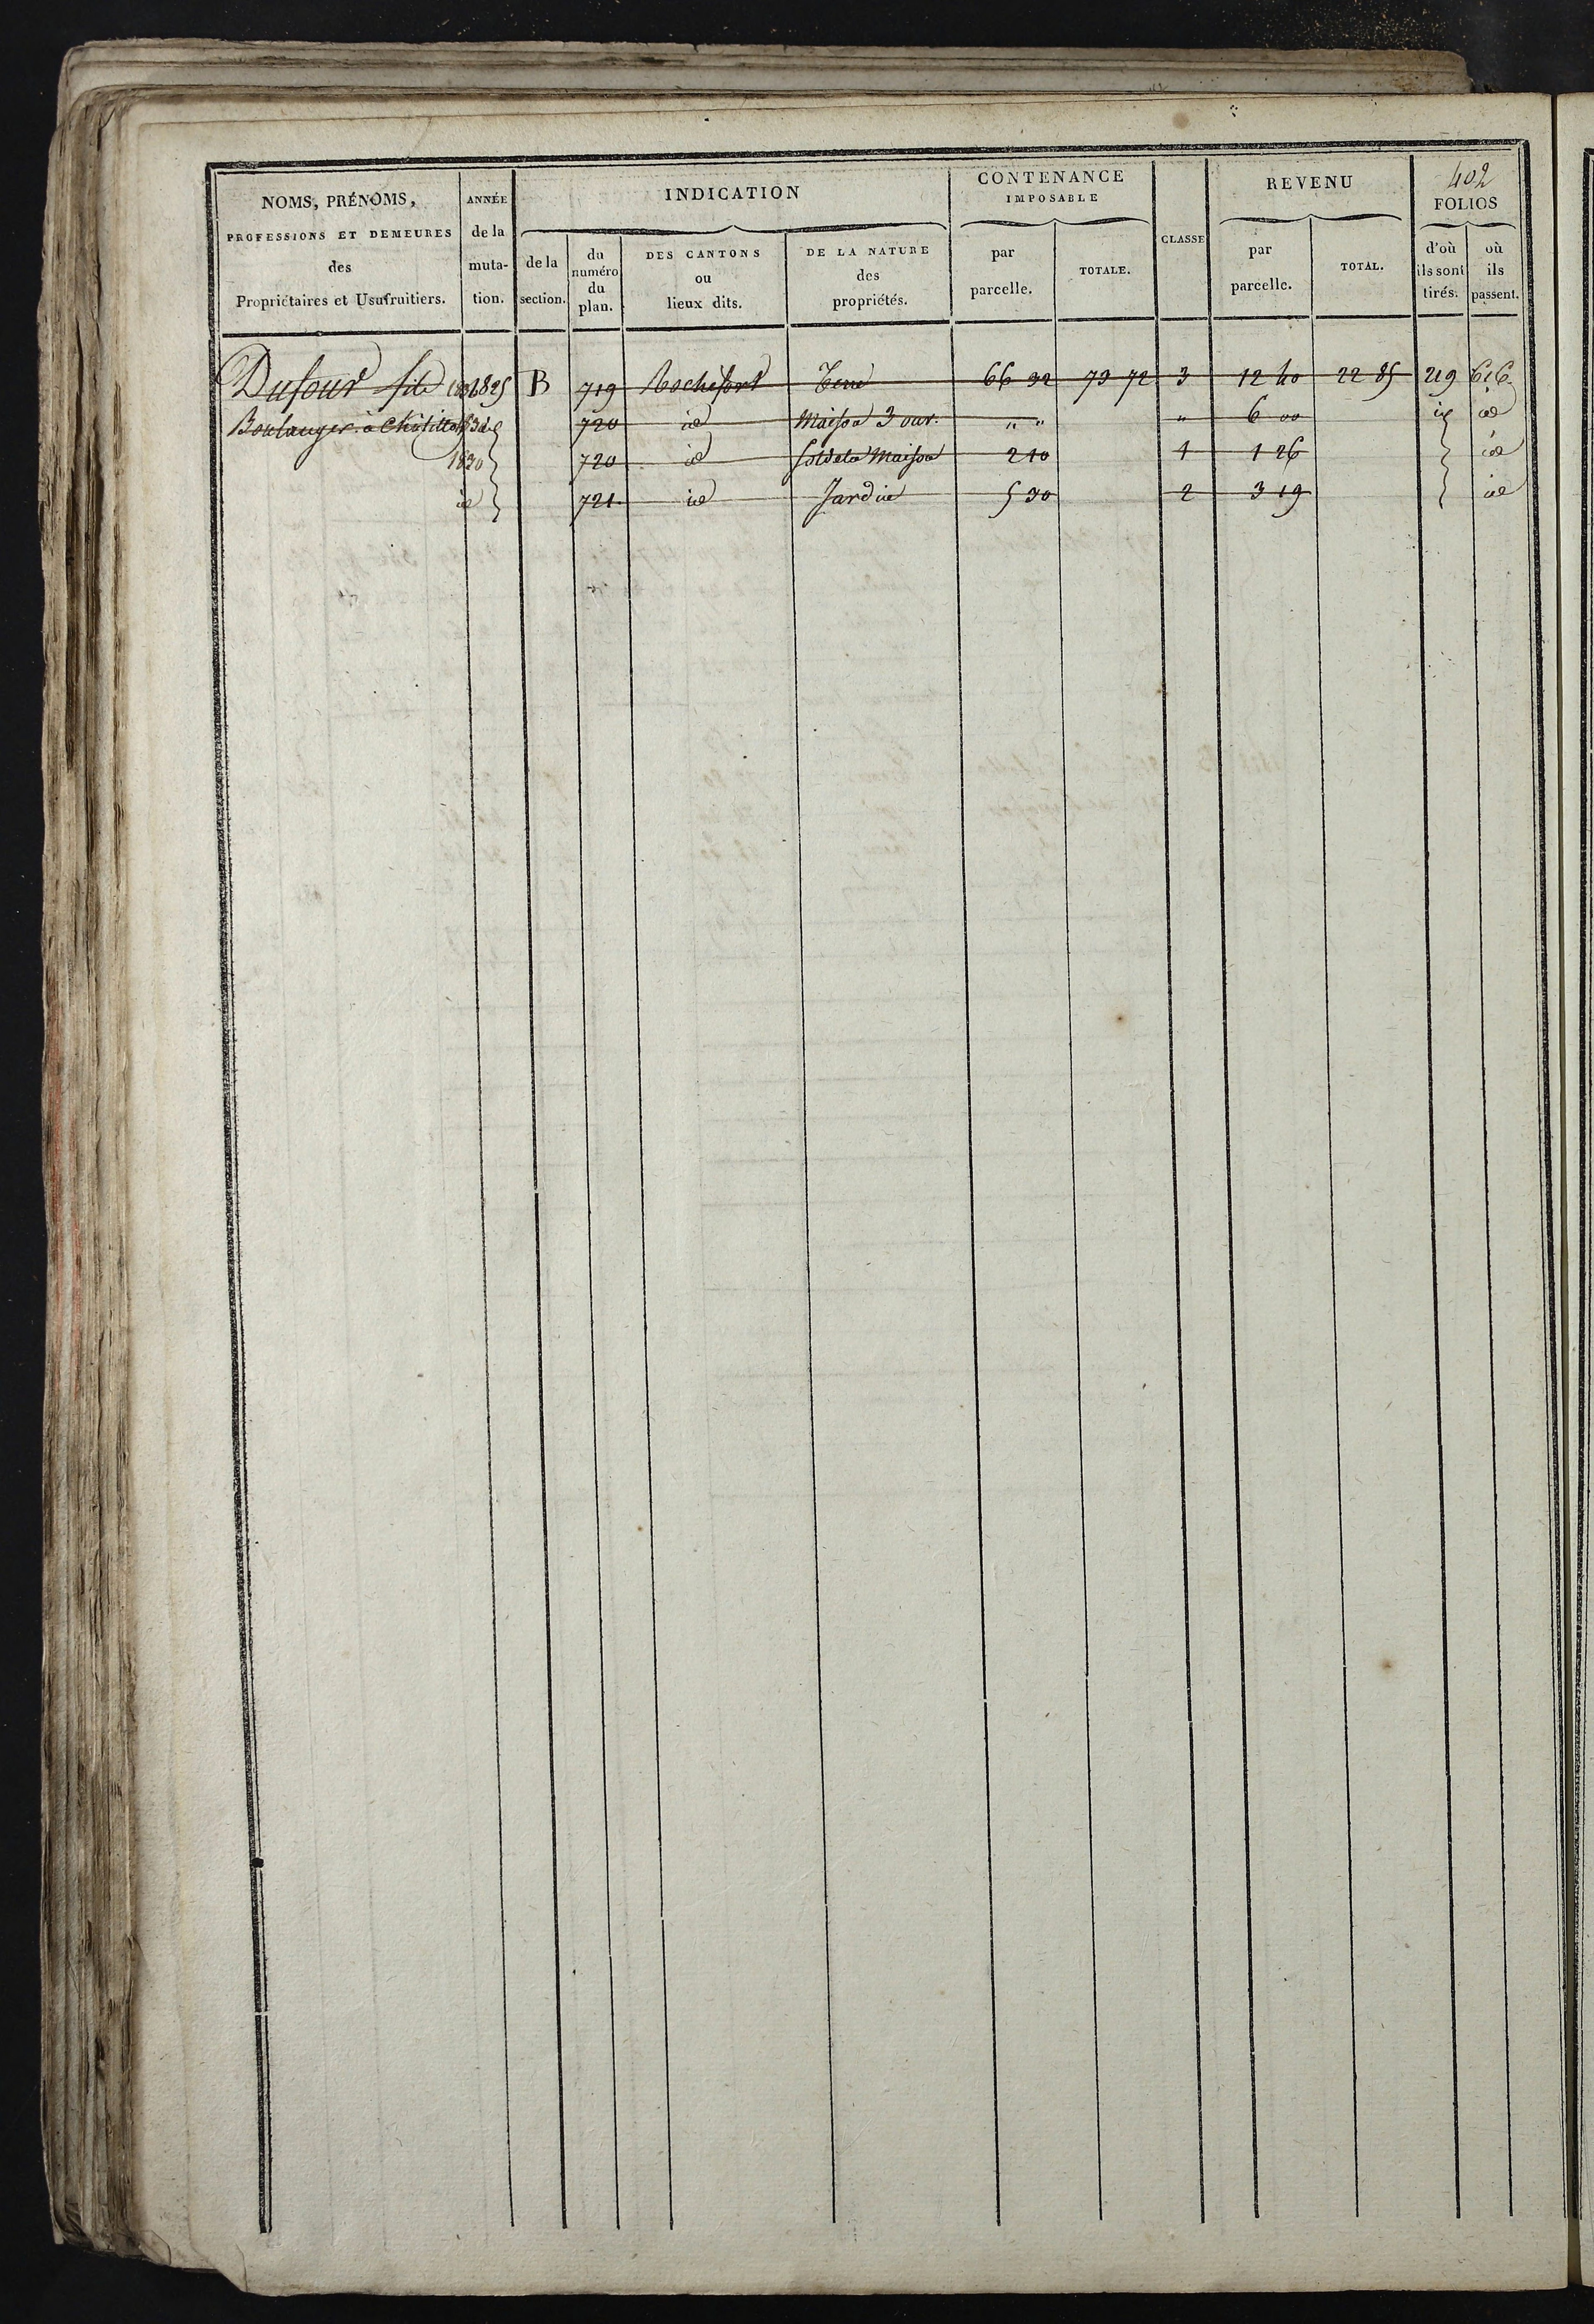 402
NOMS, PRÉNOMS, ANNÉE INDICATION CONTENANCE CLASSE REVENU FOLIOS
PROFESSIONS ET DEMEURES de la IMPOSABLE
des muta- de la du numéro du plan. DES CANTONS ou lieux dits. DE LA NATURE des propriétés. par parcelle. TOTALE. par parcelle. TOTAL. d'où ils sont tirés. où ils passent.
Propriétaires et Usufruitiers. tion. section.
Dufour fils 1825 B 719 Rochefort Terre 66 32 73 72 3 12 40 22 85 219 616
Boulanger à Châtillon 720 id Maison 3 ouv. " " " 6 00 id id
1830 720 id Sol de la Maison 2 10 1 1 26 id
id 721 id Jardin 5 30 2 3 19 id